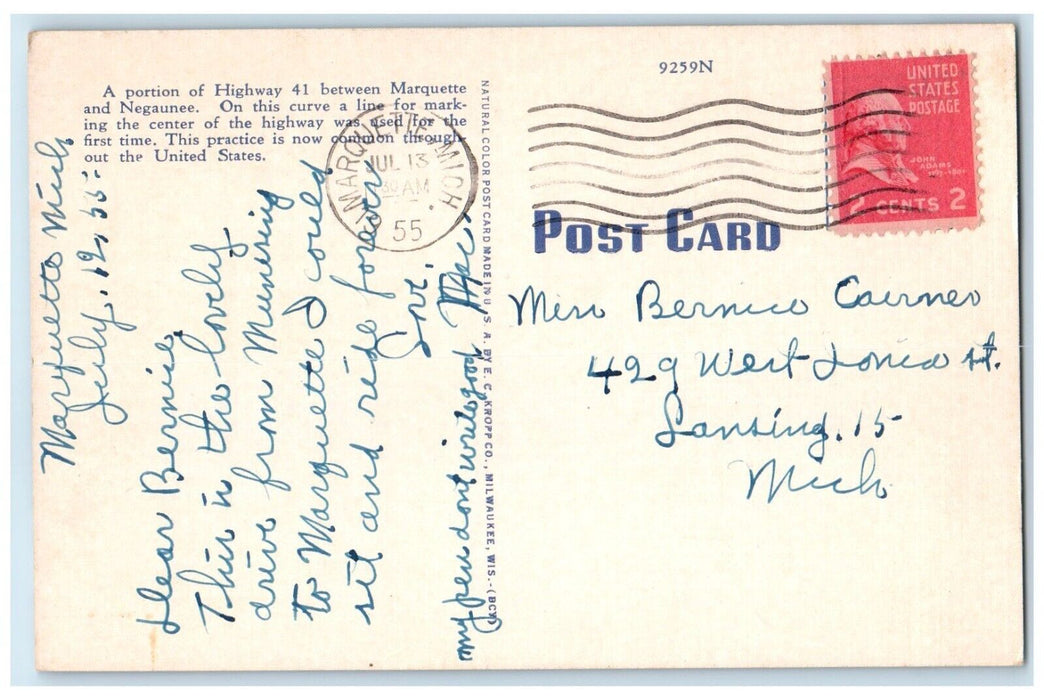 A portion of Highway 41 between Marquette
and Negaunee. On this curve a line for mark-
ing the center of the highway was used for the
first time. This practice is now common through-
out the United States.
Marquette Mich
July. 12, 55
Dear Bernice,
This is the lovely
drive from Munising
to Marquette I could
sit and ride forever
Love.
my pen dont write good
NATURAL COLOR POST CARD MADE IN U.S.A. BY E. C. KROPP CO., MILWAUKEE, WIS.-(BCY)
9259N
MARQUETTE, MICH.
JUL 13
30 AM
55
UNITED
STATES
POSTAGE
JOHN
ADAMS
1797-1801
2 CENTS 2
POST CARD
Miss Bernice
429 West Ionia St.
Lansing. 15
Mich